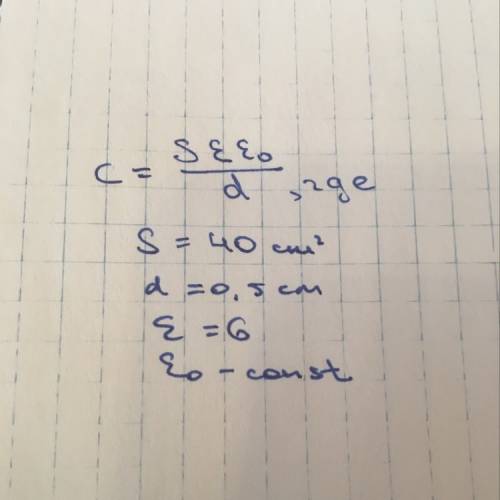 C = Sεε₀/d, где
S = 40 cm²
d = 0,5 cm
ε = 6
ε₀ - const